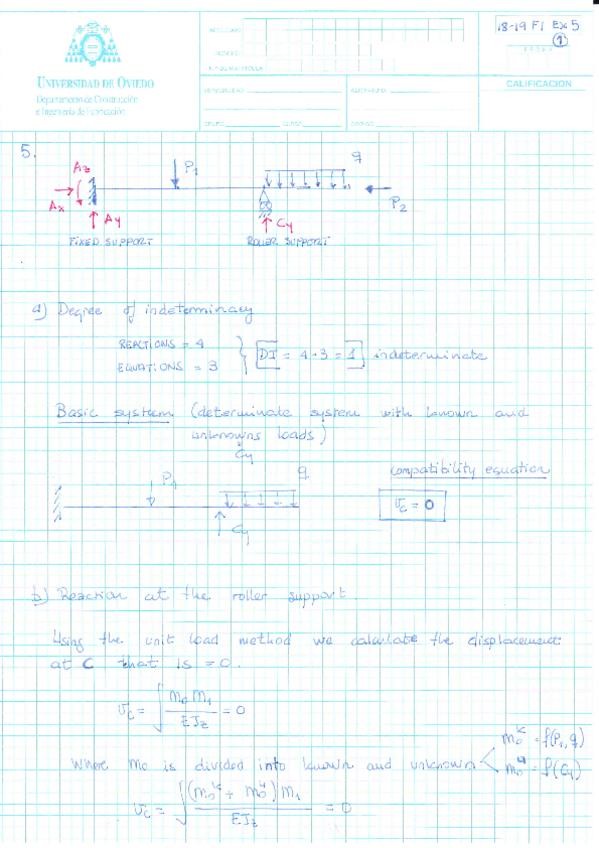 18-19 F1 Ex 5
1
UNIVERSIDAD DE OVIEDO
Departamento de Construcción
e Ingeniería de Fabricación
CALIFICACION
5.
Az P1 q
Ax Ay Cy P2
FIXED SUPPORT ROLLER SUPPORT
a) Degree of indeterminacy
REACTIONS = 4
EQUATIONS = 3
DI = 4-3 = 1 indeterminate
Basic system (determinate system with known and
unknowns loads)
Cy
P1 q compatibility equation
vc = 0
Cy
b) Reaction at the roller support.
Using the unit load method we calculate the displacement
at C that is = 0.
vc = ∫ m0 m1 / EJz = 0
Where m0 is divided into known and unknown
m0^k = f(P1, q)
m0^u = f(Cy)
vc = ∫ (m0^k + m0^u) m1 / EJz = 0